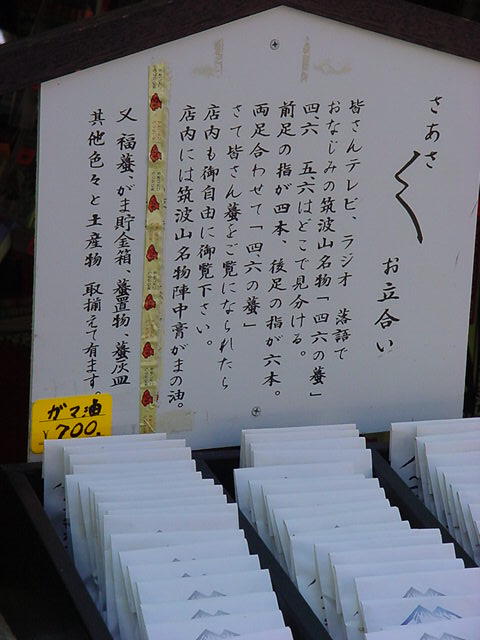 さあさ〱
お立合い
皆さんテレビ、ラジオ 落語で
おなじみの筑波山名物「四六の蟇」
四、六 五、六はどこで見分ける。
前足の指が四本、後足の指が六本。
両足合わせて「四、六の蟇」
さて皆さん蟇をご覧になられたら
店内も御自由に御覧下さい。
店内には筑波山名物陣中膏がまの油。
又 福蟇、がま貯金箱、蟇置物、蟇灰皿
其他色々と土産物 取揃えて有ます。
ガマ油
¥700.